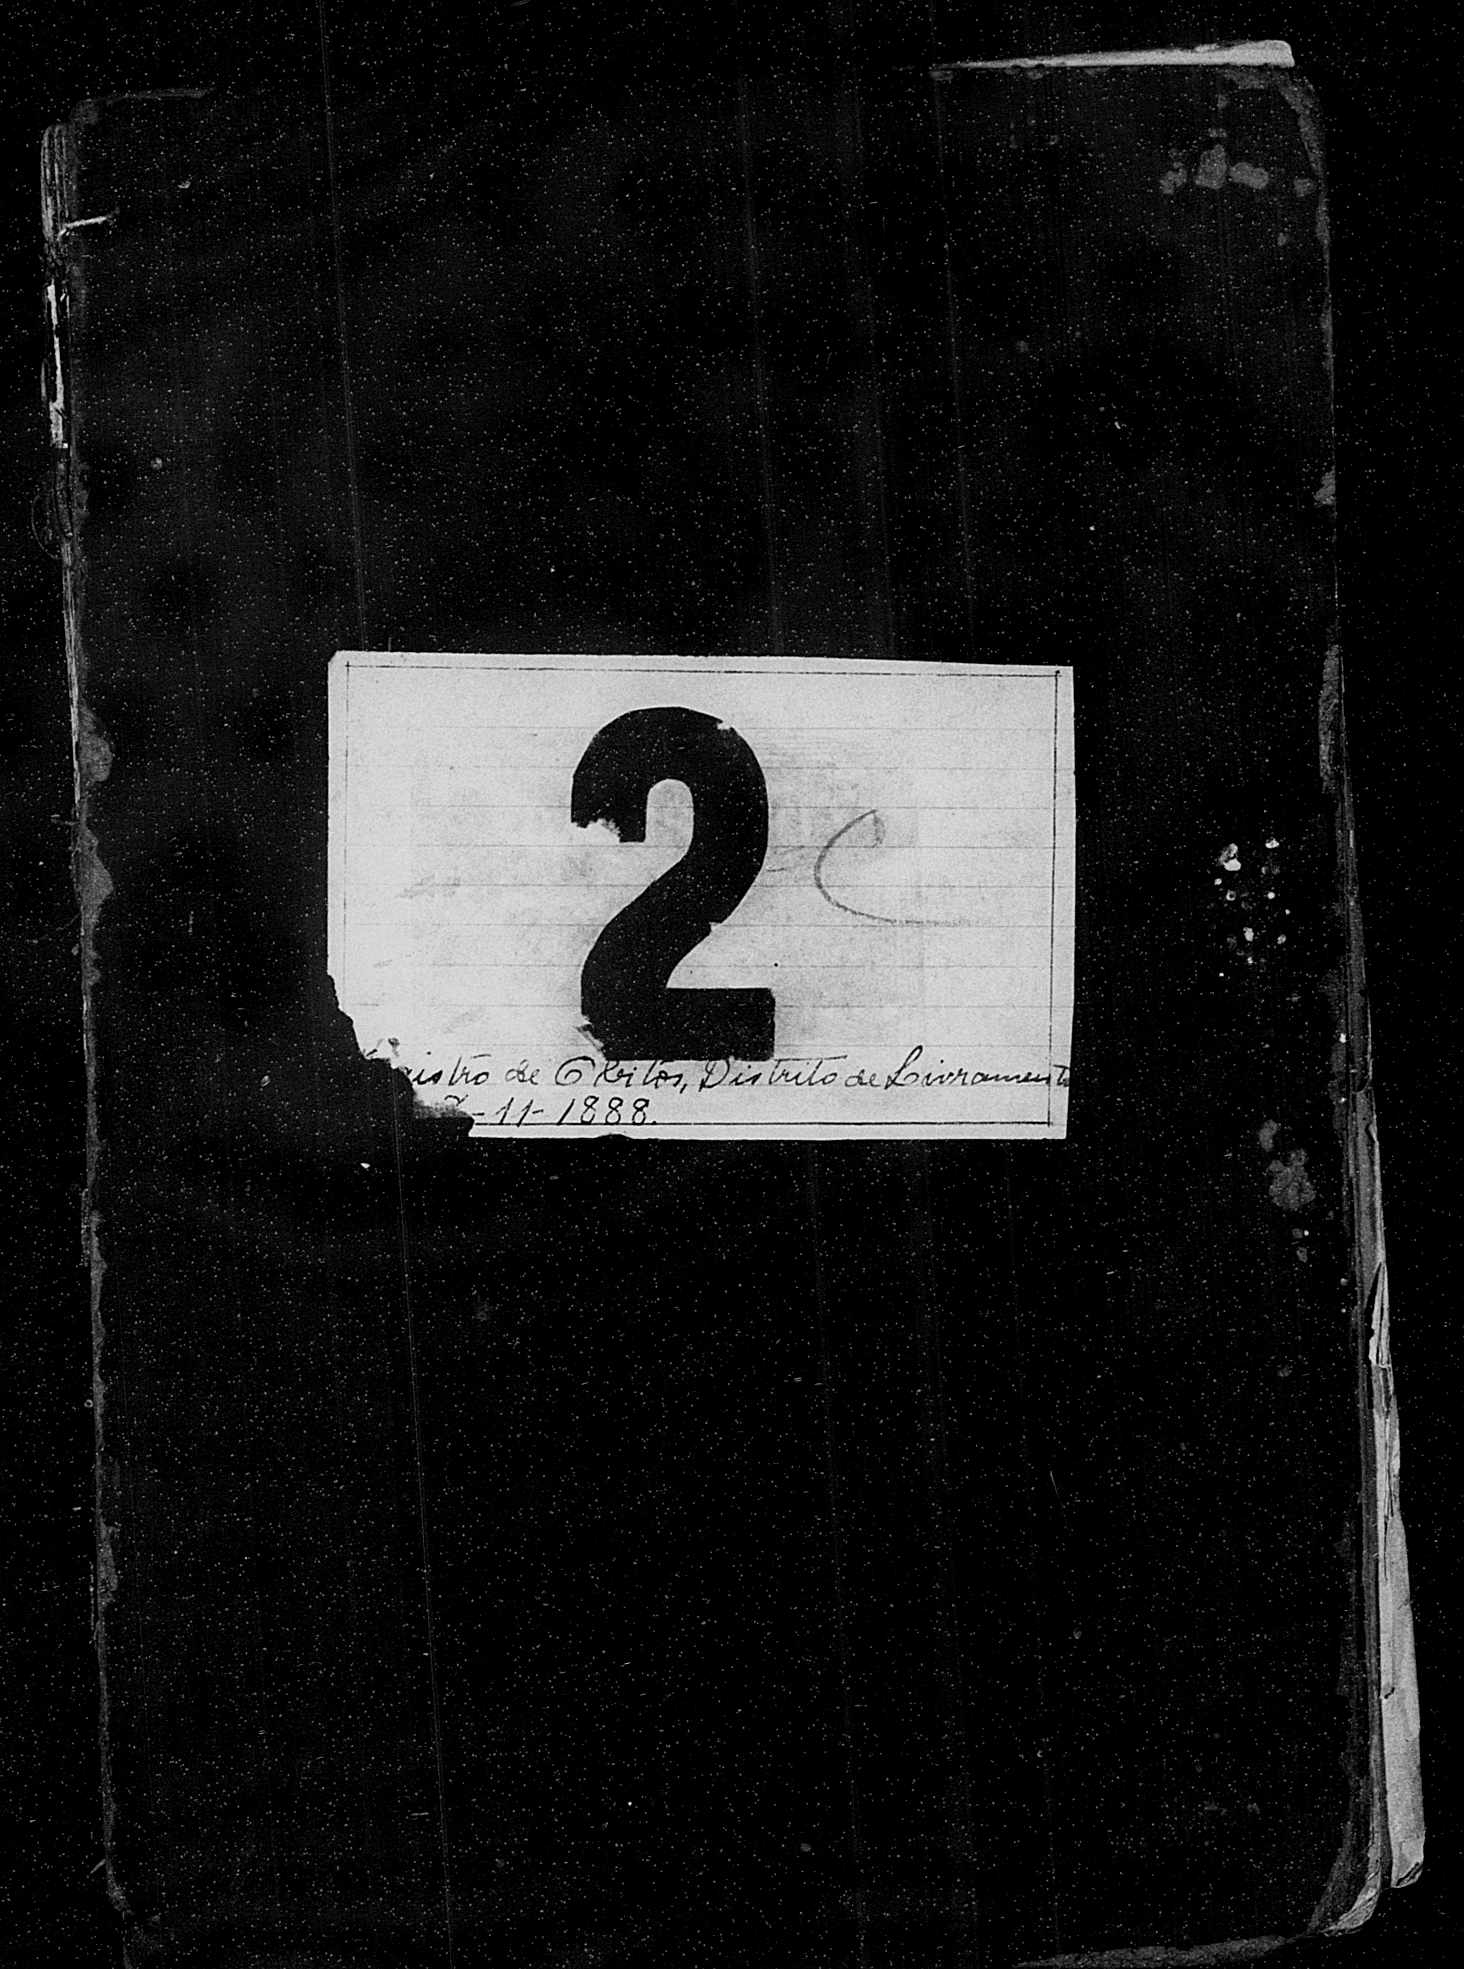 2 C
gistro de Obitos, Distrito de Livramento
-11-1888.